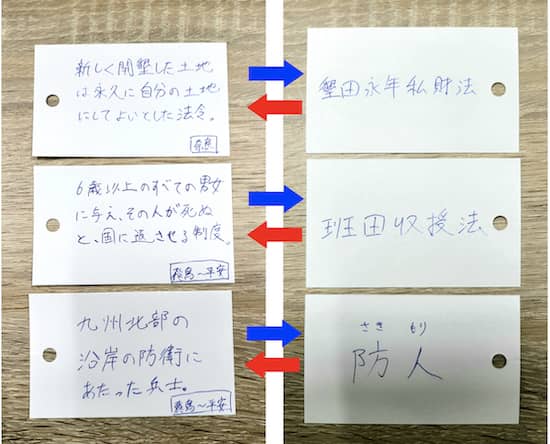 新しく開墾した土地
は永久に自分の土地
にしてよいとした法令。
奈良
墾田永年私財法
6歳以上のすべての男女
に与え、その人が死ぬ
と、国に返させる制度。
飛鳥〜平安
班田収授法
九州北部の
沿岸の防衛に
あたった兵士。
飛鳥〜平安
さき もり
防人